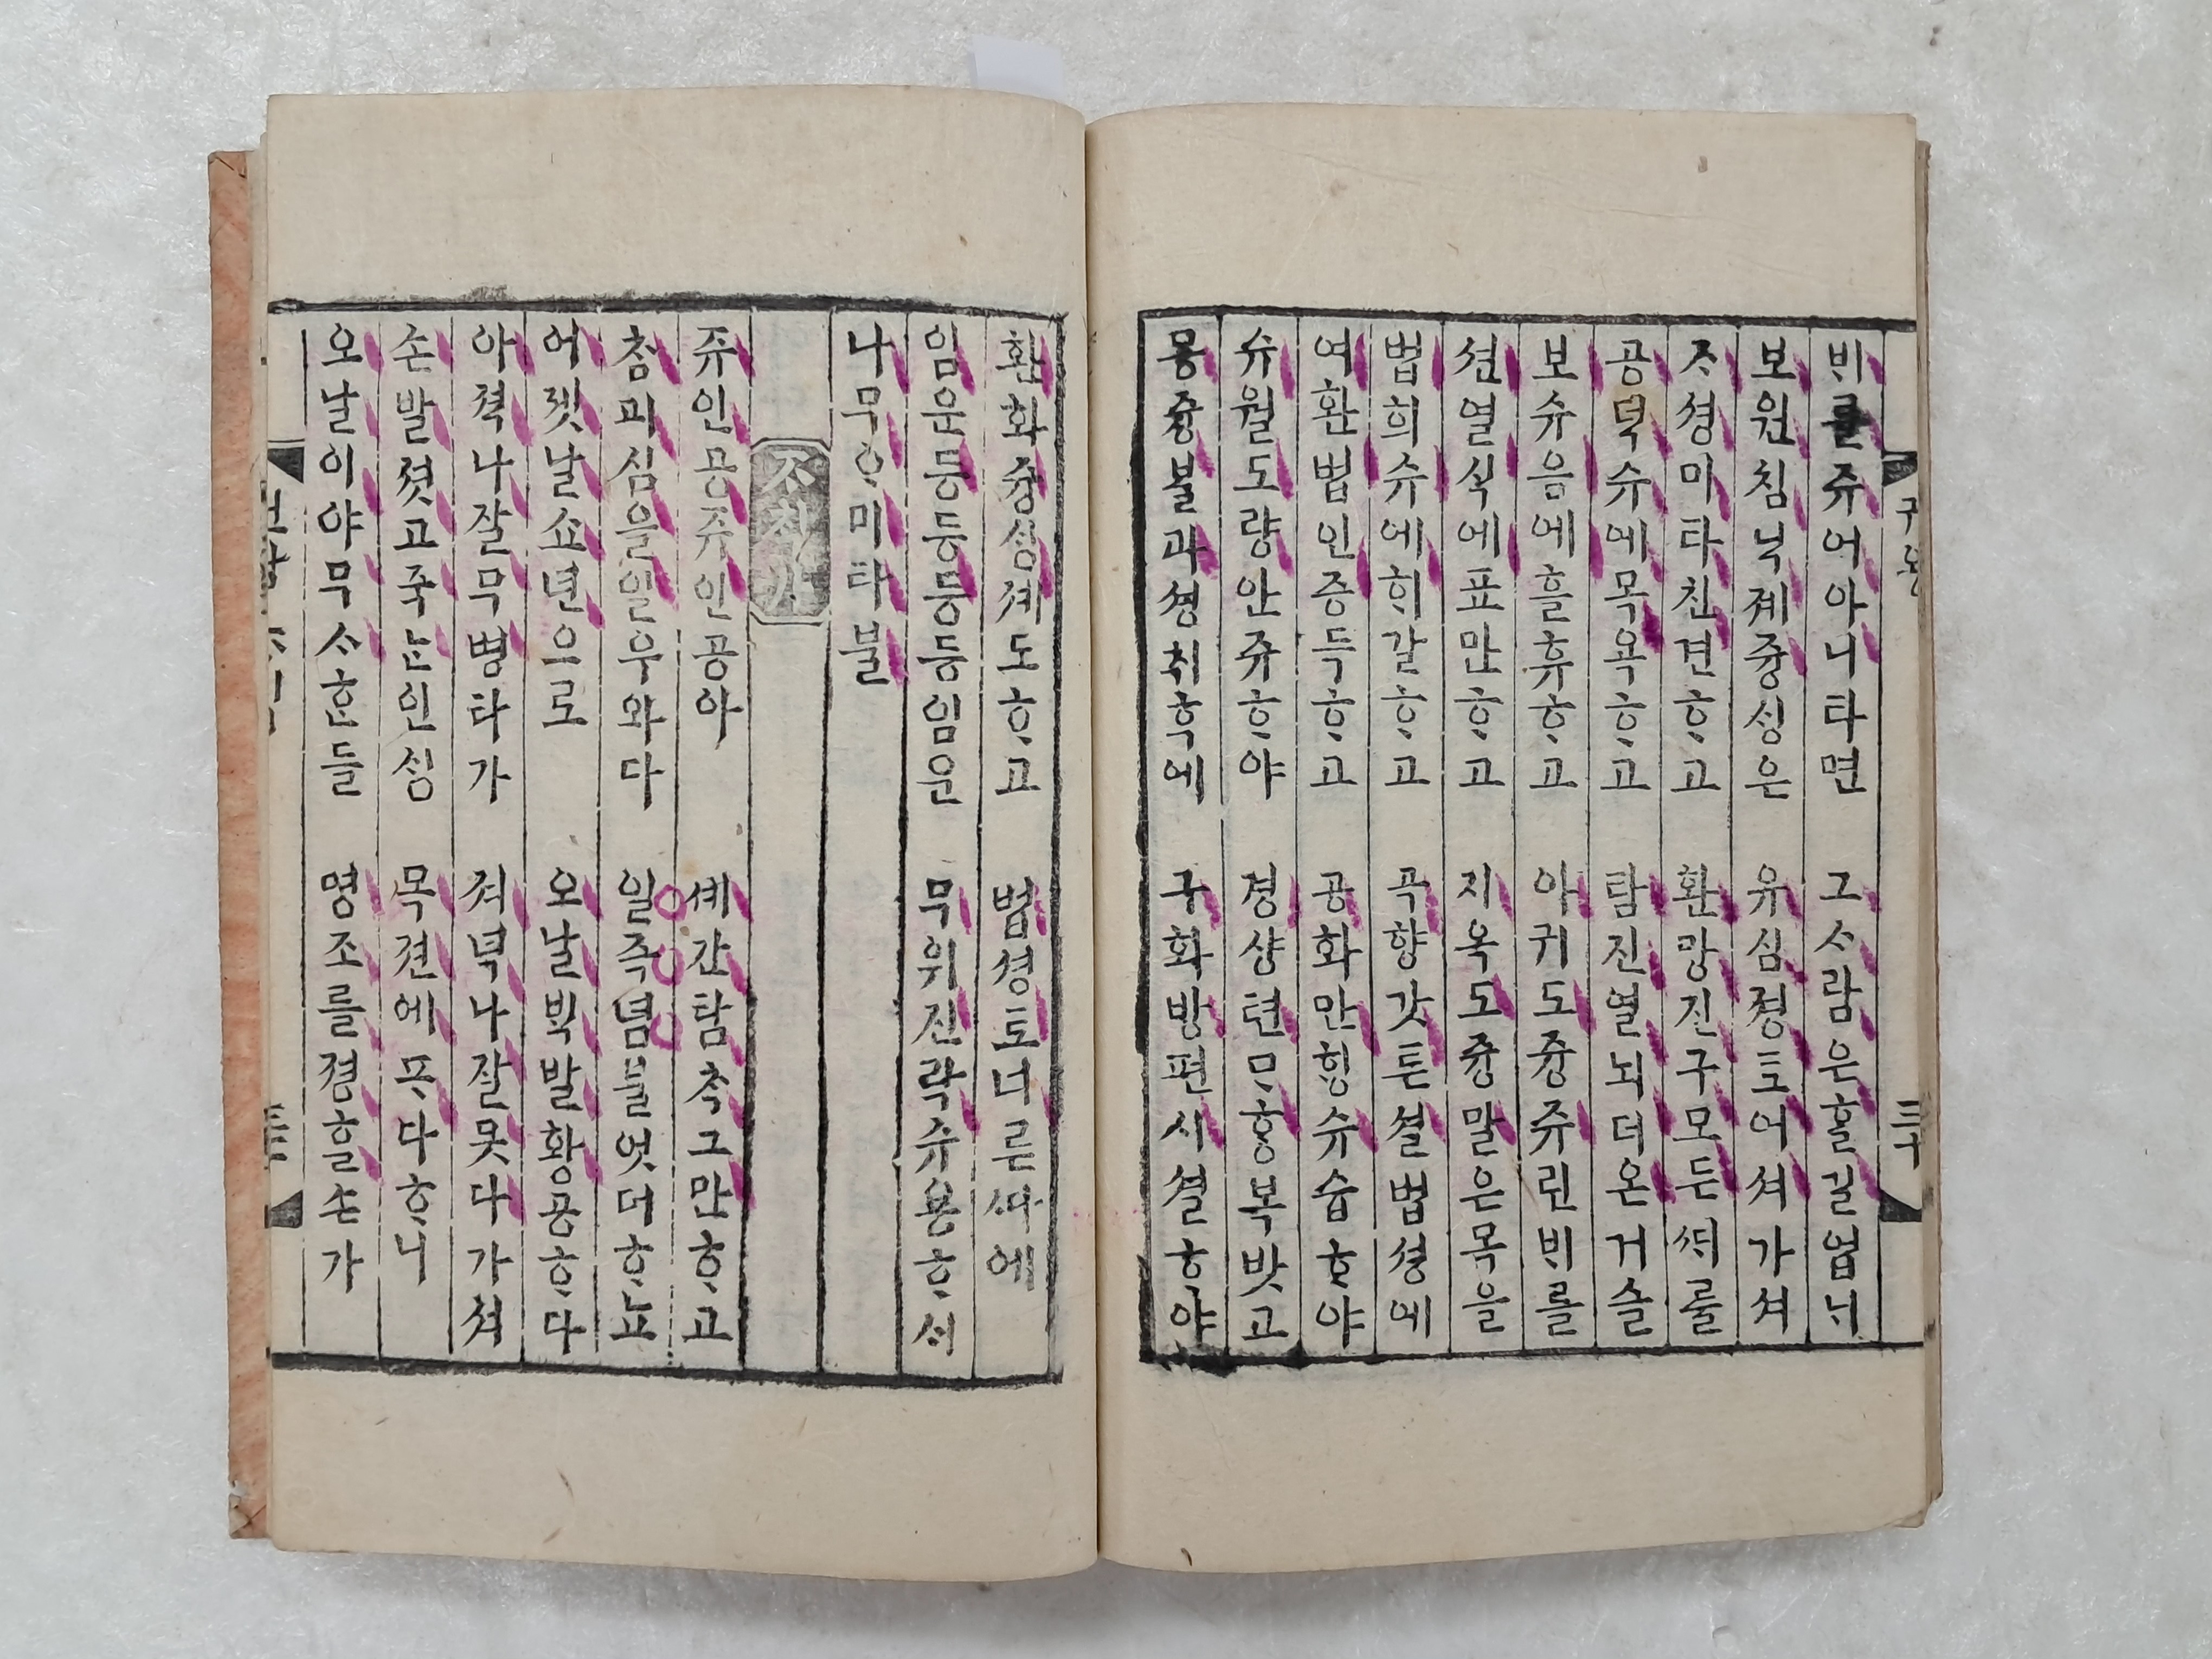 ᄇᆡ를쥬어아니타면 그ᄉᆞ람은ᄒᆞᆯ길업ᄂᆡ
보원침닉졔즁ᄉᆡᆼ은 유심졍토어셔가셔
ᄌᆞ셩미타친견ᄒᆞ고 환망진구모든ᄯᆡ를
공덕슈에목욕ᄒᆞ고 탐진열뇌더온거슬
보슈음에흘휴ᄒᆞ고 아귀도즁쥬린ᄇᆡ를
션열식에포만ᄒᆞ고 지옥도즁말은목을
법희슈에ᄒᆡ갈ᄒᆞ고 곡향갓튼셜법셩에
여환법인증득ᄒᆞ고 공화만ᄒᆡᆼ슈습ᄒᆞ야
슈월도량안쥬ᄒᆞ야 경상텬ᄆᆞᄒᆞᆼ복밧고
몽즁불과셩취ᄒᆞᆨ에 구화방편시셜ᄒᆞ야
환화즁ᄉᆡᆼ졔도ᄒᆞ고 법셩토다른ᄯᅡ에
임운등등등등임운 무위진락슈용ᄒᆞᄉᆡ
나무ᄋᆞ미타불
ᄌᆞᄎᆡᆨ가
쥬인공쥬인공아 셰간탐착그만ᄒᆞ고
참괴심을일우와다 일즉념불엇더ᄒᆞ뇨
어졧날쇼년으로 오날ᄇᆡᆨ발황공ᄒᆞ다
아젹나잘무병타가 져녁나잘못다가셔
손발셧고죽ᄂᆞᆫ인ᄉᆡᆼ 목젼에ᄑᆞ다ᄒᆞ니
오날이야무ᄉᆞᄒᆞᆫ들 명조를졍ᄒᆞᆯ손가